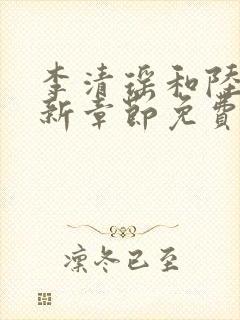 李清瑶和陆
新章节免费
凛冬已至